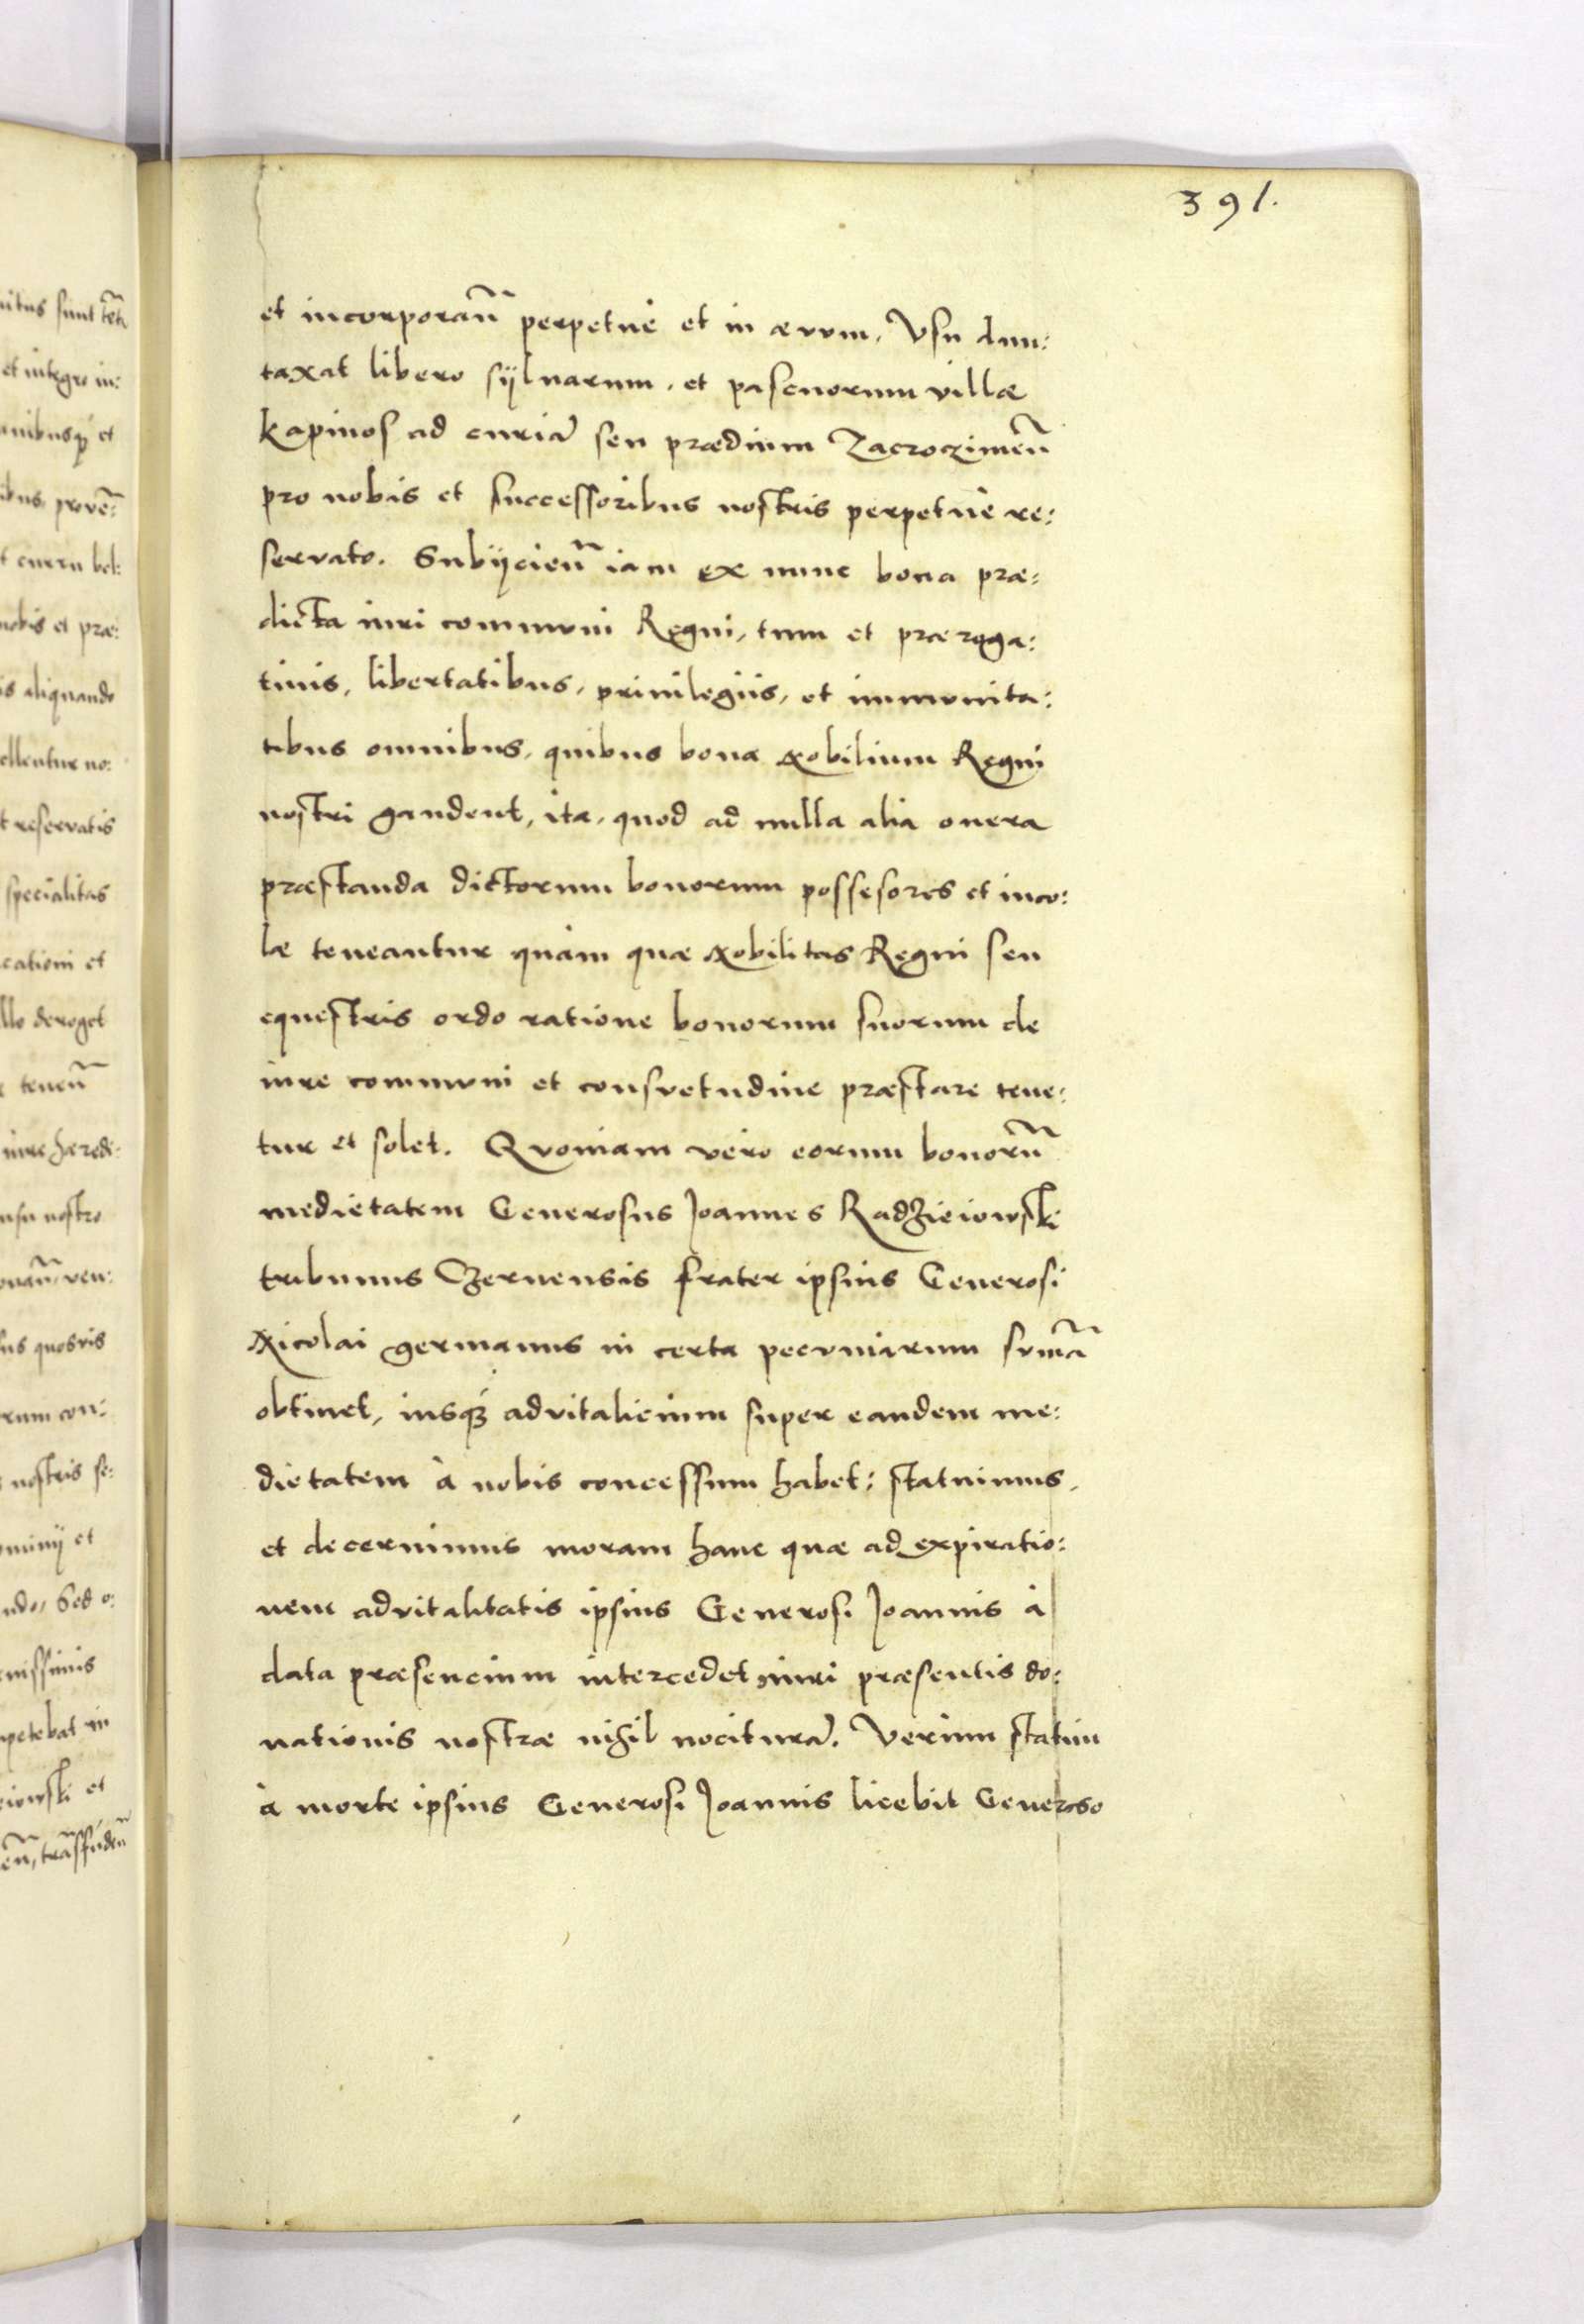 391.
et incorporan̄ perpetuè et in ævum, Vsu dun:
taxat libero sÿluarum, et pascuorum villæ
Kapinos ad curiã seu prædium Zacrocziment̄
pro nobis et successoribus nostris perpetuè re:
servato. Subÿcien̄ iam ex nunc bona præ:
dicta iuri communi Regni, tum et præroga:
tiuis, libertatibus, priuilegiis, et immunita:
tibus omnibus, quibus bona Nobilium Regni
nostri gaudent, ita, quod ad nulla alia onera
præstanda dictorum bonorum possesores et inco:
læ teneantur quàm quæ Nobilitas Regni seu
equestris ordo ratione bonorum suorum de
iure communi et consvetudine præstare tene:
tur et solet. Quoniam vero eorum bonorũ
medietatem Generosus Joannes Radzieiowski
tribunus Czernensis frater ipsius Generosi
Nicolai germanus in certa pecuniarum sum̃a
obtinet, iusq; advitalicium super eandem me:
dietatem à nobis concessum habet: statuimus,
et decernimus moram hanc quæ ad expiratio:
nem advitalitatis ipsius Generosi Joannis à
data præsencium intercedet, iuri præsentis do:
nationis nostræ nihil nociturã. Verùm statim
à morte ipsius Generosi Joannis licebit Generoso
itus sunt
et integro in:
et
proven̄:
curru
nobis et præ:
is aliquando
no:
t reservatis
specialitas
cationi et
llo deroget
tenen̄
iure hærede:
usu nostro
ven:
us quosvis
rum con:
nostris se:
minÿ et
Sed o:
nissimis
petebat in
et